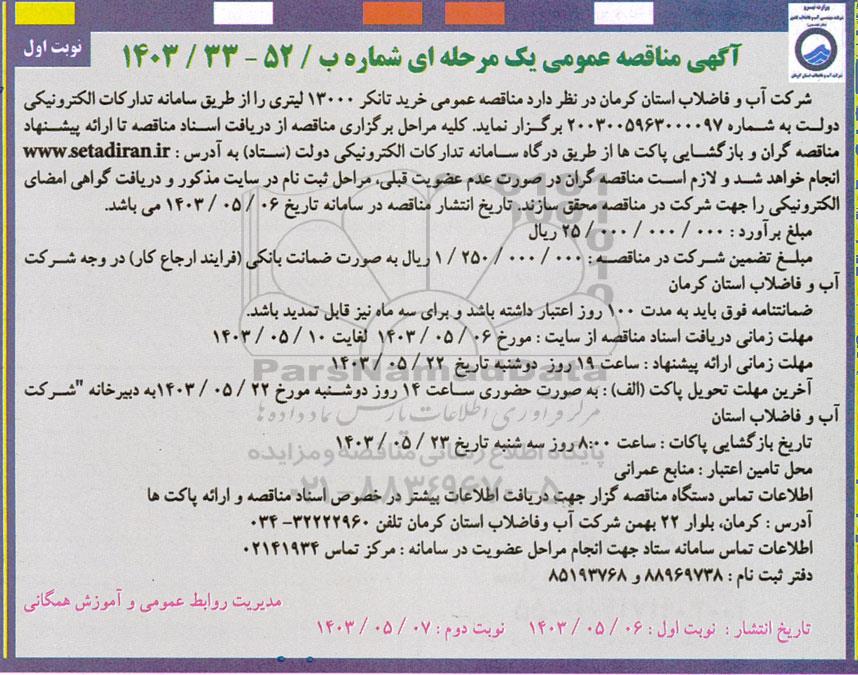 وزارت نیرو
نوبت اول
آگهی مناقصه عمومی یک مرحله ای شماره ب / ۵۲ - ۳۳ / ۱۴۰۳
شرکت آب و فاضلاب استان کرمان در نظر دارد مناقصه عمومی خرید تانکر ۱۳۰۰۰ لیتری را از طریق سامانه تدارکات الکترونیکی
دولت به شماره ۲۰۰۳۰۰۵۹۶۳۰۰۰۰۹۷ برگزار نماید. کلیه مراحل برگزاری مناقصه از دریافت اسناد مناقصه تا ارائه پیشنهاد
مناقصه گران و بازگشایی پاکت ها از طریق درگاه سامانه تدارکات الکترونیکی دولت (ستاد) به آدرس : www.setadiran.ir
انجام خواهد شد و لازم است مناقصه گران در صورت عدم عضویت قبلی، مراحل ثبت نام در سایت مذکور و دریافت گواهی امضای
الکترونیکی را جهت شرکت در مناقصه محقق سازند. تاریخ انتشار مناقصه در سامانه تاریخ ۰۶ / ۰۵ / ۱۴۰۳ می باشد.
مبلغ برآورد : ۰۰۰ / ۰۰۰ / ۰۰۰ / ۲۵ ریال
مبلغ تضمین شرکت در مناقصه : ۰۰۰ / ۰۰۰ / ۲۵۰ / ۱ ریال به صورت ضمانت بانکی (فرایند ارجاع کار) در وجه شرکت
آب و فاضلاب استان کرمان
ضمانتنامه فوق باید به مدت ۱۰۰ روز اعتبار داشته باشد و برای سه ماه نیز قابل تمدید باشد.
مهلت زمانی دریافت اسناد مناقصه از سایت : مورخ ۰۶ / ۰۵ / ۱۴۰۳ لغایت ۱۰ / ۰۵ / ۱۴۰۳
مهلت زمانی ارائه پیشنهاد : ساعت ۱۹ روز دوشنبه تاریخ ۲۲ / ۰۵ / ۱۴۰۳
ParsNamadData
آخرین مهلت تحویل پاکت (الف) : به صورت حضوری ساعت ۱۴ روز دوشنبه مورخ ۲۲ / ۰۵ / ۱۴۰۳به دبیرخانه "شرکت
آب و فاضلاب استان
مرکز فرآوری اطلاعات پارس نماد داده ها
تاریخ بازگشایی پاکات : ساعت ۸:۰۰ روز سه شنبه تاریخ ۲۳ / ۰۵ / ۱۴۰۳
پایگاه اطلاع رسانی مناقصه و مزایده
محل تامین اعتبار : منابع عمرانی
۰۲۱-۸۸۳۴۹۶۷۰-۵
اطلاعات تماس دستگاه مناقصه گزار جهت دریافت اطلاعات بیشتر در خصوص اسناد مناقصه و ارائه پاکت ها
آدرس : کرمان، بلوار ۲۲ بهمن شرکت آب وفاضلاب استان کرمان تلفن ۳۲۲۲۲۹۶۰- ۰۳۴
اطلاعات تماس سامانه ستاد جهت انجام مراحل عضویت در سامانه : مرکز تماس ۰۲۱۴۱۹۳۴
دفتر ثبت نام : ۸۸۹۶۹۷۳۸ و ۸۵۱۹۳۷۶۸
مدیریت روابط عمومی و آموزش همگانی
تاریخ انتشار : نوبت اول : ۰۶ / ۰۵ / ۱۴۰۳ نوبت دوم : ۰۷ / ۰۵ / ۱۴۰۳